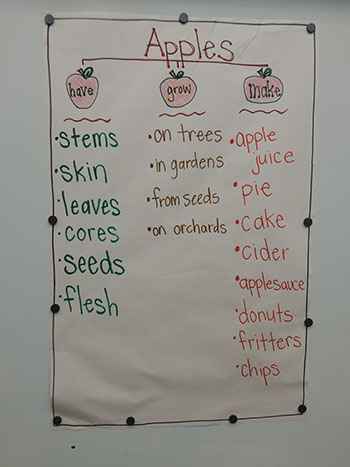 Apples
have
grow
make
•stems
•skin
•leaves
•cores
•seeds
•flesh
•on trees
•in gardens
•from seeds
•on orchards
•apple
juice
•pie
•cake
•cider
•applesauce
•donuts
•fritters
•chips